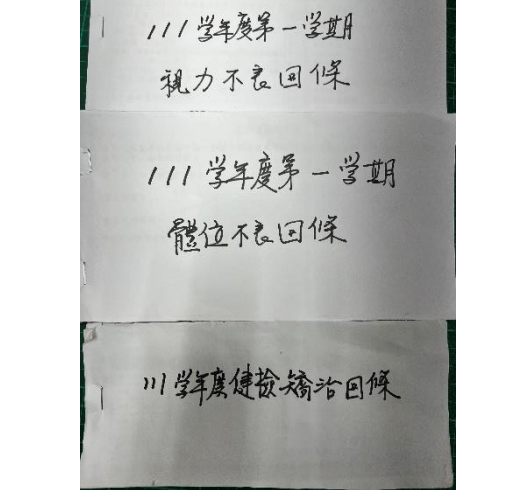 111学年度第一学期
視力不良回條
111学年度第一学期
體位不良回條
111学年度健檢矯治回條